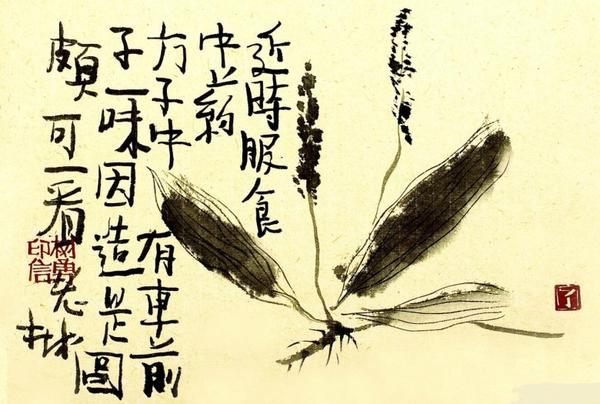 近時服食
中药
方子中有車前
子一味因造是圖
頗可一看老树
樹勇印信